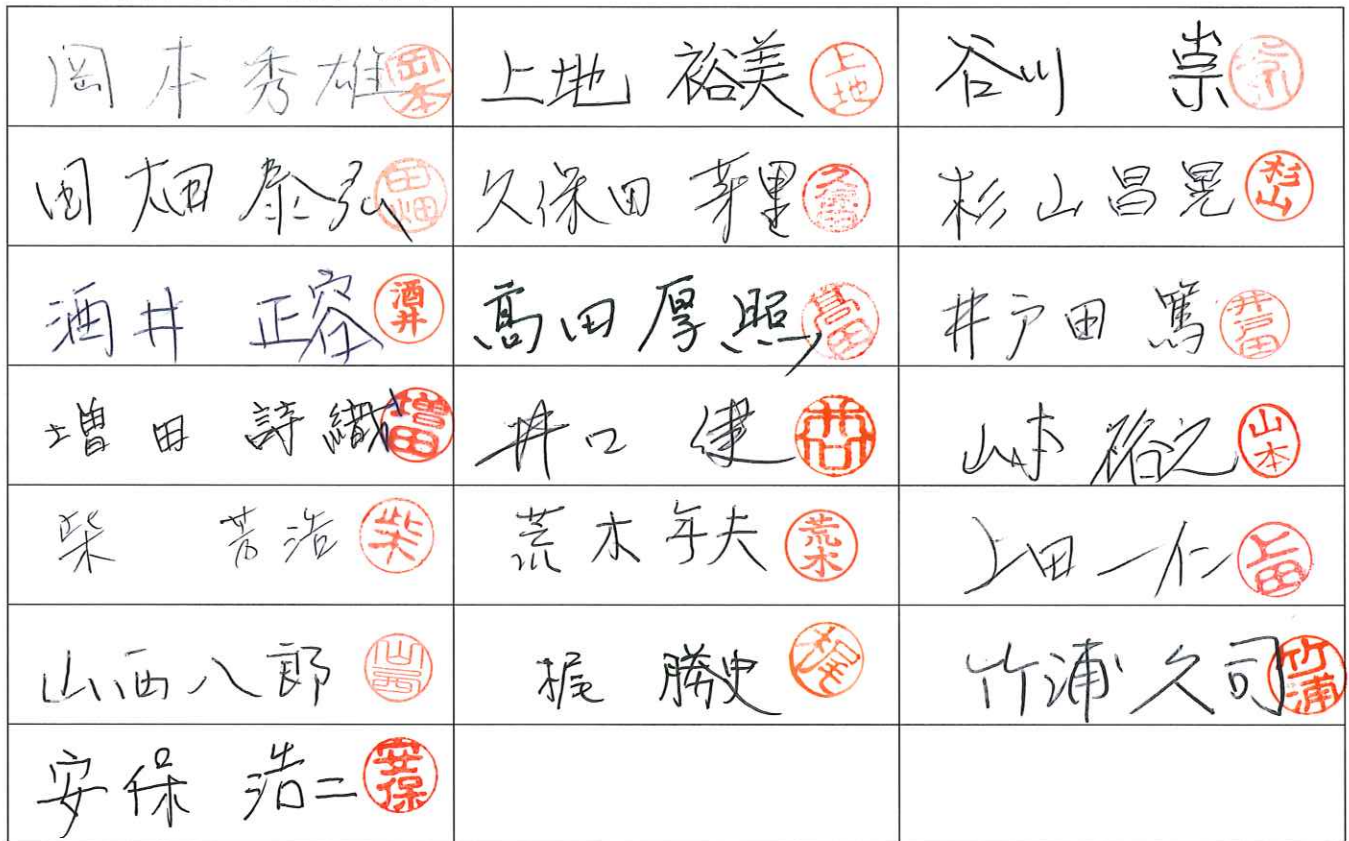 岡本秀雄 岡本
上地 裕美 上地
谷川 崇 谷川
田畑泰弘 田畑
久保田 芽里 久保田
杉山昌晃 杉山
酒井 正容 酒井
髙田厚照 髙田
井戸田 篤 井戸田
増田 詩織 増田
井口 健 井口
山本 裕之 山本
柴 芳浩 柴
荒木年夫 荒木
上田一仁 上田
山西八郎 山西
梶 勝史 梶
竹浦久司 竹浦
安保 浩二 安保